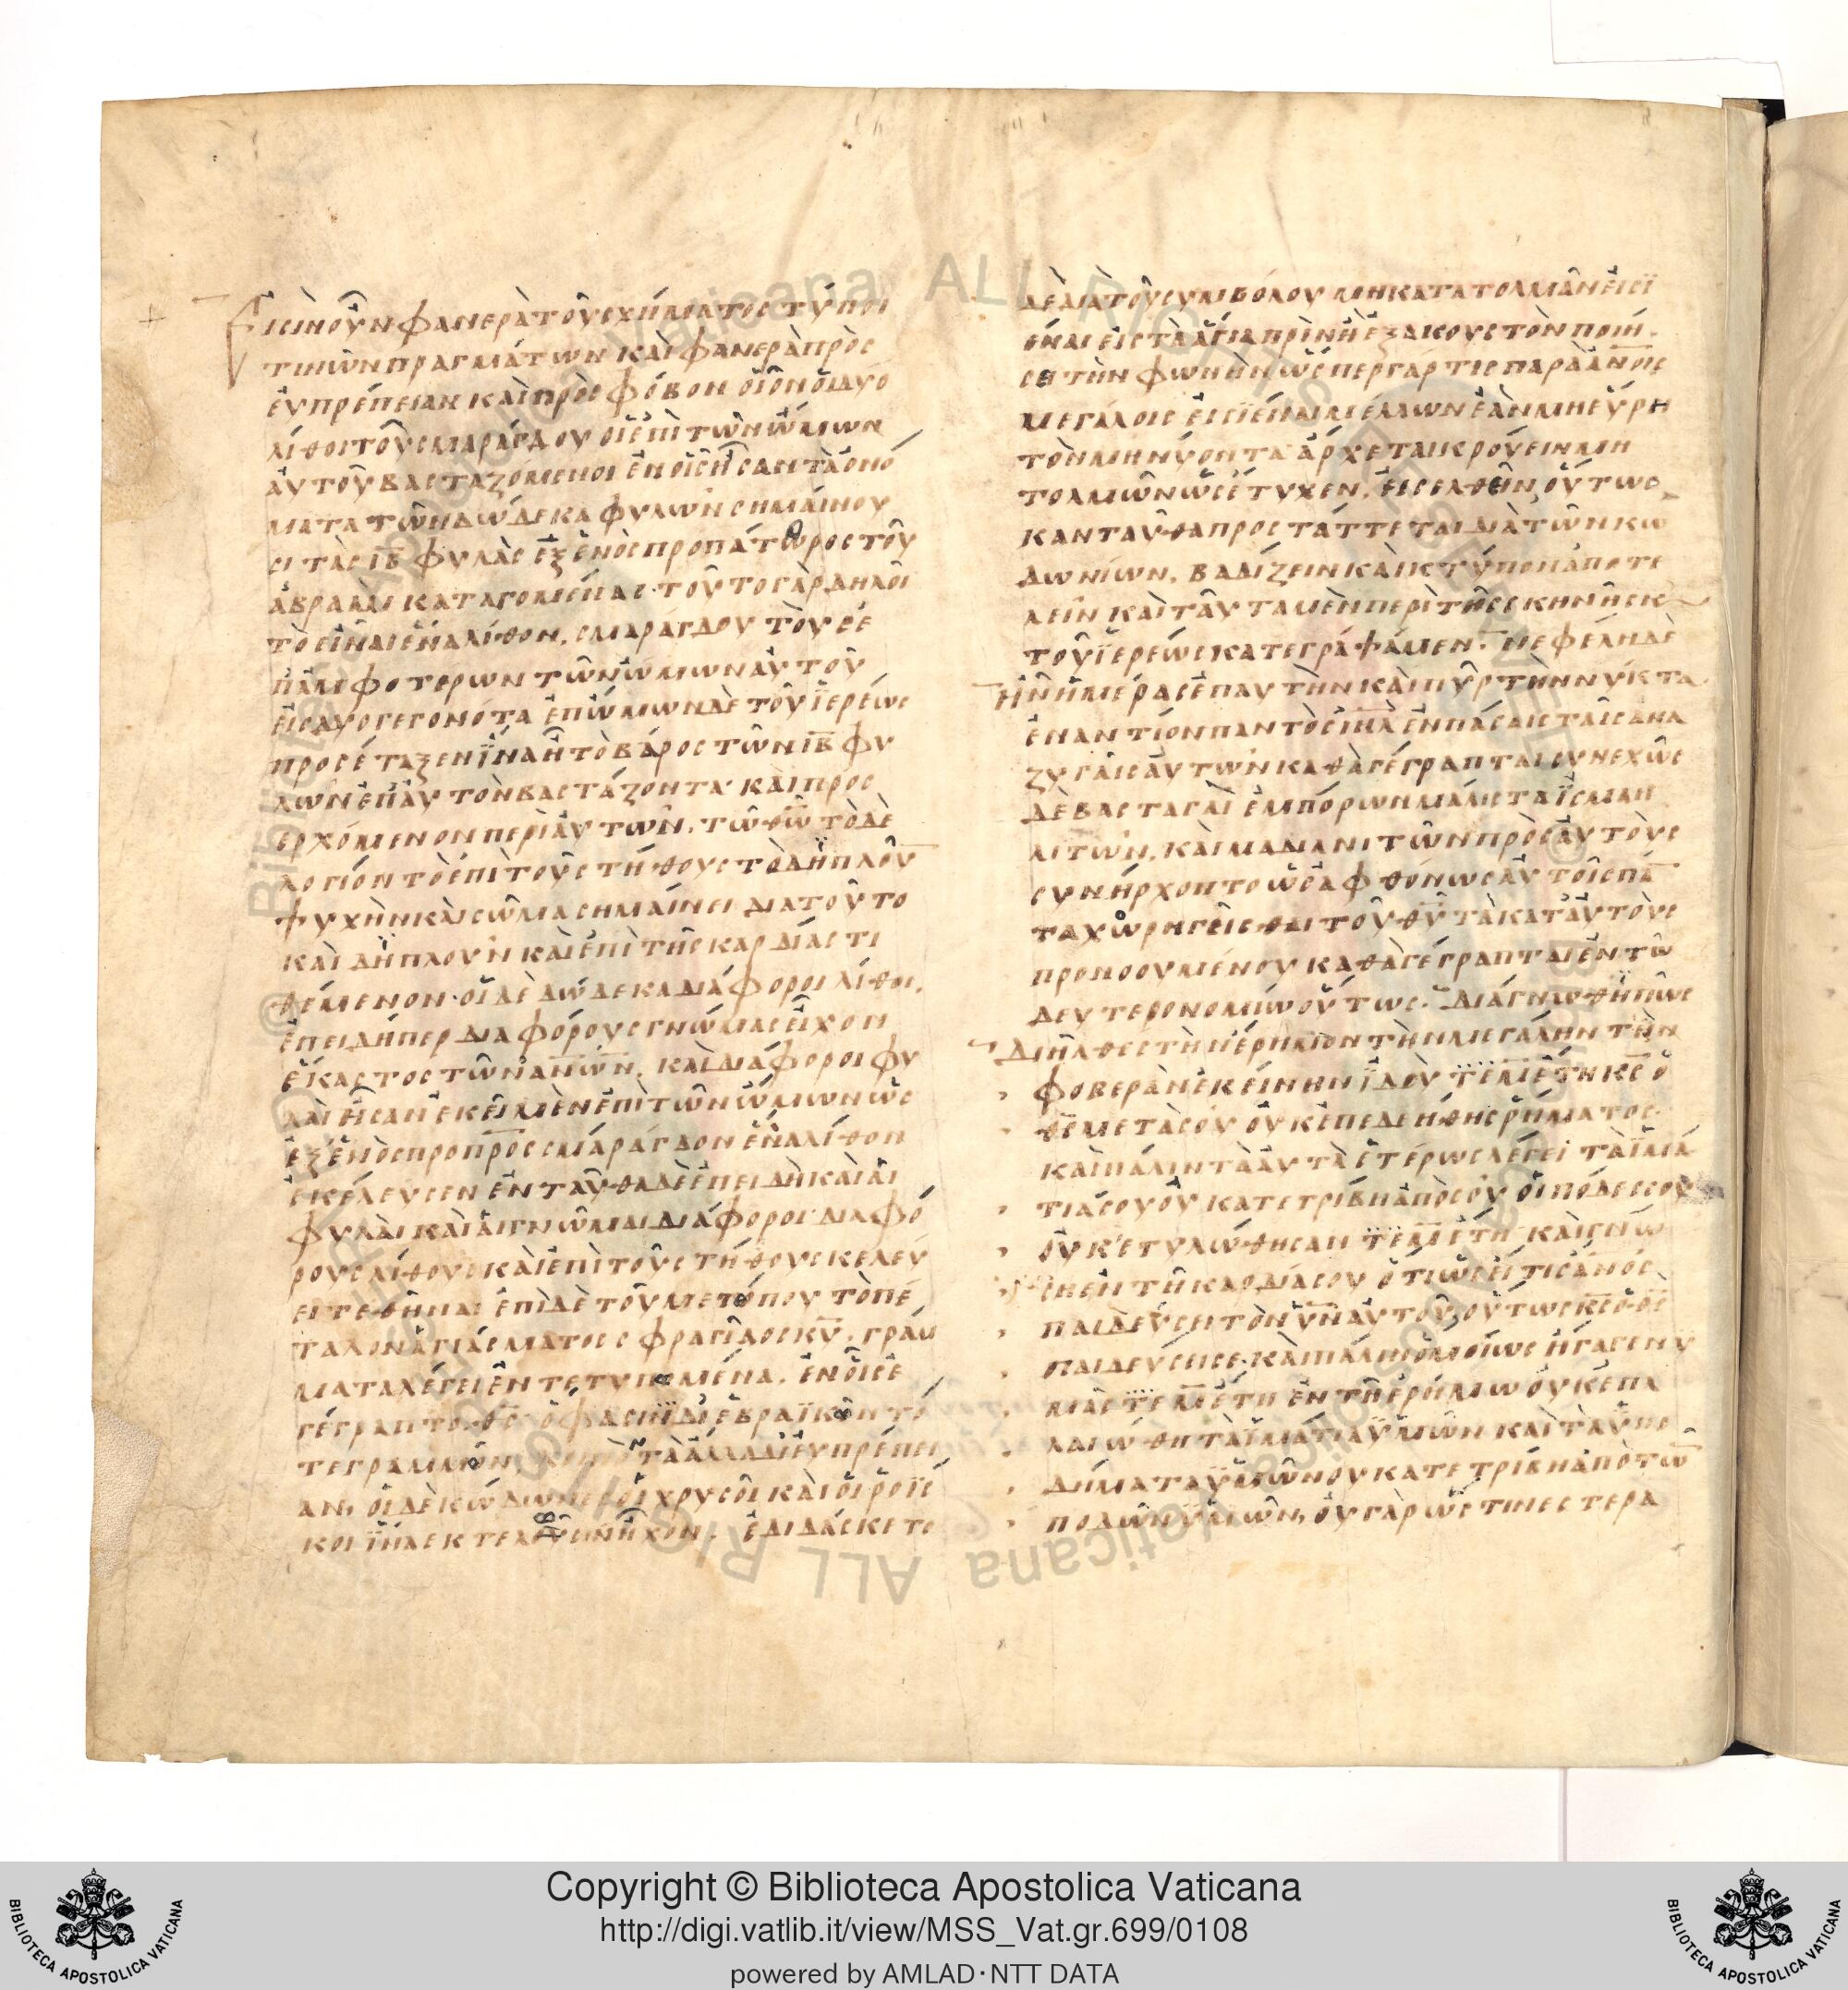 Εἰσὶν οὖν φανερὰ τοῦ σχήματος τύποι
τινῶν πραγμάτων καὶ φανερὰ πρὸς
εὐπρέπειαν καὶ πρὸς φόβον οἷον οἱ δύο
λίθοι τοῦ σμαράγδου οἱ ἐπὶ τῶν ὤμων
αὐτοῦ βασταζόμενοι ἐν οἷς ἦσαν τὰ ὀνό
ματα τῶν δώδεκα φυλῶν σημαίνου
σι τὰς ιβ φυλὰς ἐξ ἑνὸς προπάτορος τοῦ
ἀβραὰμ καταγομένας· τοῦτο γὰρ δηλοῖ
τὸ εἶναι ἕνα λίθον, σμαράγδου τὸν ἐ
π' ἀμφοτέρων τῶν ὤμων αὐτοῦ
εἰς δύο γεγονότα ἐπ' ὤμων δὲ τοῦ ἱερέως
προσέταξεν ἵνα ἦ τὸ βάρος τῶν ιβ φυ
λῶν ἐπ' αὐτὸν βαστάζοντα· καὶ προσ
ερχόμενον περὶ αὐτῶν, τῶ θω τὸ δὲ
λογίον τὸ ἐπὶ τοῦ στήθους τὸ διπλοῦν
ψυχὴν καὶ σῶμα σημαίνει διὰ τοῦτο
καὶ διπλοῦν καὶ ἐπὶ τῆς καρδίας τι
θέμενον· οἱ δὲ δώδεκα διάφοροι λίθοι,
ἐπειδήπερ διαφόρους γνώμας εἶχον
ἕκαστος τῶν ανων, καὶ διάφοροι φυ
λαὶ ἦσαν ἐκεῖ μὲν ἐπὶ τῶν ὤμων ὡς
ἐξ ἑνὸς προπρος σμάραγδον ἕνα λίθον
ἐκέλευσεν ἐνταῦθα δὲ ἐπειδὴ καὶ αἱ
φυλαὶ καὶ αἱ γνῶμαι διάφοροι διαφό
ρους λίθους καὶ ἐπὶ τοῦ στήθους κελεύ
ει τεθῆναι ἐπὶ δὲ τοῦ μετόπου τὸ πέ
ταλον ἁγιάσματος σφραγῖδος κυ. γράμ
ματα λέγει ἐντετυπωμένα, ἐν οἷς ἐ
γέγραπτο θς ὅ φασιν δι' ἑβραϊκῶν τὸ
τετραγράμμον, τὰ ἄλλα δι' εὐπρέπει
αν, οἱ δὲ κώδωνες οἱ χρυσοῖ καὶ οἱ ροΐσ
κοι ἵνα ἐκτελοῦσιν ἦχον. ἐδιδάσκετο
δὲ διὰ τοῦ συμβόλου μὴ κατατολμᾶν εἰσϊ
έναι εἰς τὰ ἅγια πρὶν ἢ ἐξάκουστον ποιή
σει τὴν φωνὴν ὥσπερ γάρ τις παρὰ ανοις
μεγάλοις εἰσϊέναι μέλλων ἐὰν μὴ εὕρη
τὸν μηνύοντα ἄρχεται κρούειν μὴ
τολμῶν ὡς ἔτυχεν, εἰσελθεῖν, οὕτως
κἀνταῦθα προστάττεται διὰ τῶν κω
δωνίων, βαδίζειν καὶ κτύπον ἀποτε
λεῖν καὶ ταῦτα μὲν περὶ τῆς σκηνῆς κ
τοῦ ϊερέως κατεγράψαμεν. Νεφέλη δὲ
ἦν ἡμέρας ἐπ' αὐτὴν καὶ πῦρ τὴν νύκτα
ἐναντίον παντὸς ιηλ ἐν πάσαις ταῖς ἀνα
ζυγαῖς αὐτῶν καθὰ γέγραπται συνεχῶς
δὲ βασταγαὶ ἐμπόρων μάλιστα ϊσμαη
λιτῶν, καὶ μαδιανιτῶν πρὸς αὐτοὺς
συνήρχοντο ὡς ἀφθόνως αὐτοῖς πά
τα χωρηγεῖσθαι τοῦ θυ τὰ κατ' αὐτοὺς
προνοουμένου καθὰ γέγραπται ἐν τῶ
δευτερονομίω οὕτως· Διάγνωθι πῶς
διῆλθες τὴν ἔρημον τὴν μεγάλην τὴν
φοβερὰν ἐκείνην ϊδοὺ τεμ ἔτη κς ὁ
θς μετὰ σοῦ οὐκ ἐπεδεήθης ῥήματος·
καὶ πάλιν τὰ αὐτὰ ἑτέρως λέγει τὰ ϊμά
τιά σου οὐ κατετρίβη ἀπὸ σοῦ οἱ πόδες σου
οὐκ ἐτυλώθησαν τεμ ἔτη καὶ γνώ
ση ἐν τῆ καρδία σου ὅτι ὡσεί τις ανος
παιδεύσει τὸν υν αὐτοῦ, οὕτως κς ὁ θς
παιδεύσει σε. καὶ πάλιν ὁμοίως ἤγαγεν ὑ
μᾶς τεμ ἔτη ἐν τῆ ἐρήμω οὐκ ἐπα
λαιώθη τὰ ϊμάτια ὑμῶν καὶ τὰ ὑπο
δήματα ὑμῶν οὐ κατετρίβη ἀπὸ τῶ
ποδῶν ὑμῶν, οὐ γὰρ ὥς τινες τερα
Copyright © Biblioteca Apostolica Vaticana
http://digi.vatlib.it/view/MSS_Vat.gr.699/0108
powered by AMLAD·NTT DATA
BIBLIOTECA APOSTOLICA VATICANA
BIBLIOTECA APOSTOLICA VATICANA